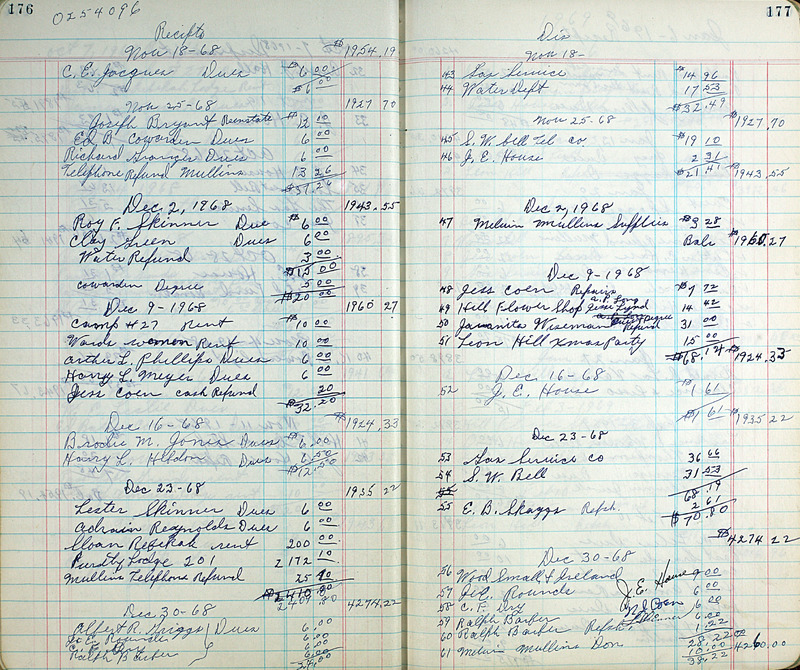 176
0254096
Recipts
Nov 18-68 $1954.19
C. E. Jacques Dues $6 00
$6 00
Nov 25-68 1927 70
Joseph Bryant Reinstate $12 10
Ed B. Cowarden Dues 6 00
Richard Dues 6 00
Telephone Refund Mullins 13 26
$37 26
Dec 2, 1968 1943.55
Roy F. Skinner Due $6 00
Clay Green Dues 6 00
Water Refund 3 00
$15 00
Cowarden Degree 5 00
$20 00
Dec 9-1968 1960 27
Camp #27 Rent $10 00
Woods women Rent 10 00
Arthur L. Phillips Dues 6 00
Harry L. Meyer Dues 6 00
Jess Coen cash Refund 20
$32.20
Dec 16-68 $1924.33
Brodie M. Jones Dues $6.00
Harry L. Dues 6.50
$12.50
Dec 23-68 1935 22
Lester Skinner Dues 6 00
Adrain Reynolds Dues 6 00
Sloan Rebekah rent 200 00
Purdy Lodge 201 2172 10
Mullins Telephone Refund 25
2409.50
Dec 30-68 4274.22
Albert R. Griggs Dues 6.00
J. E. Rounds 6.00
C. F. Dry 6.00
Ralph Barker 6.00
24.00
177
Dis
Nov 18-
43 Gas Service $14 96
44 Water Dept 17 53
$32.49
Nov 25-68 $1927.70
45 S. W. Bell Tel co $19 10
46 J. E. House 2 31
$21.41 $1943.55
Dec 2, 1968
47 Melvin Mullins Supplies $3 28
Bale $1960.27
Dec 9-1968
48 Jess Coen Repairs $7 72
49 Hill Flower Shop 14 42
50 Juanita Wiseman Refund 31 00
51 Leon Hill Xmas Party 15 00
$68.14 $1924.33
Dec 16-68
52 J. E. House $1 61
$1 61 $1935 22
Dec 23-68
53 Gas Service co 36 66
54 S. W. Bell 31 53
68.19
55 E. B. Skaggs Refsh. 2 61
$70.80
$4274 22
Dec 30-68
56 Wood Small & Ireland J. E. House 9.00
57 J. E. Rounds 6 00
58 C. F. Dry 6 00
59 Ralph Barker 6.00
60 Ralph Barker Refsh. 1.22
28.22
61 Melvin Mullins Don 10.00
38.22 4260.00